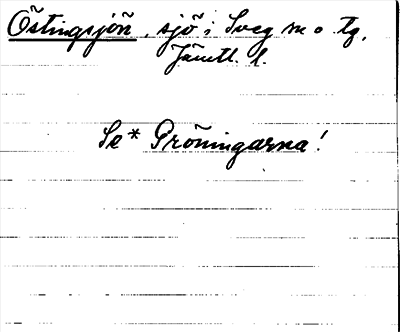 Östingsjön, sjö i Sveg m o tg,
Jämtl. l.
Se* Pröningarna!